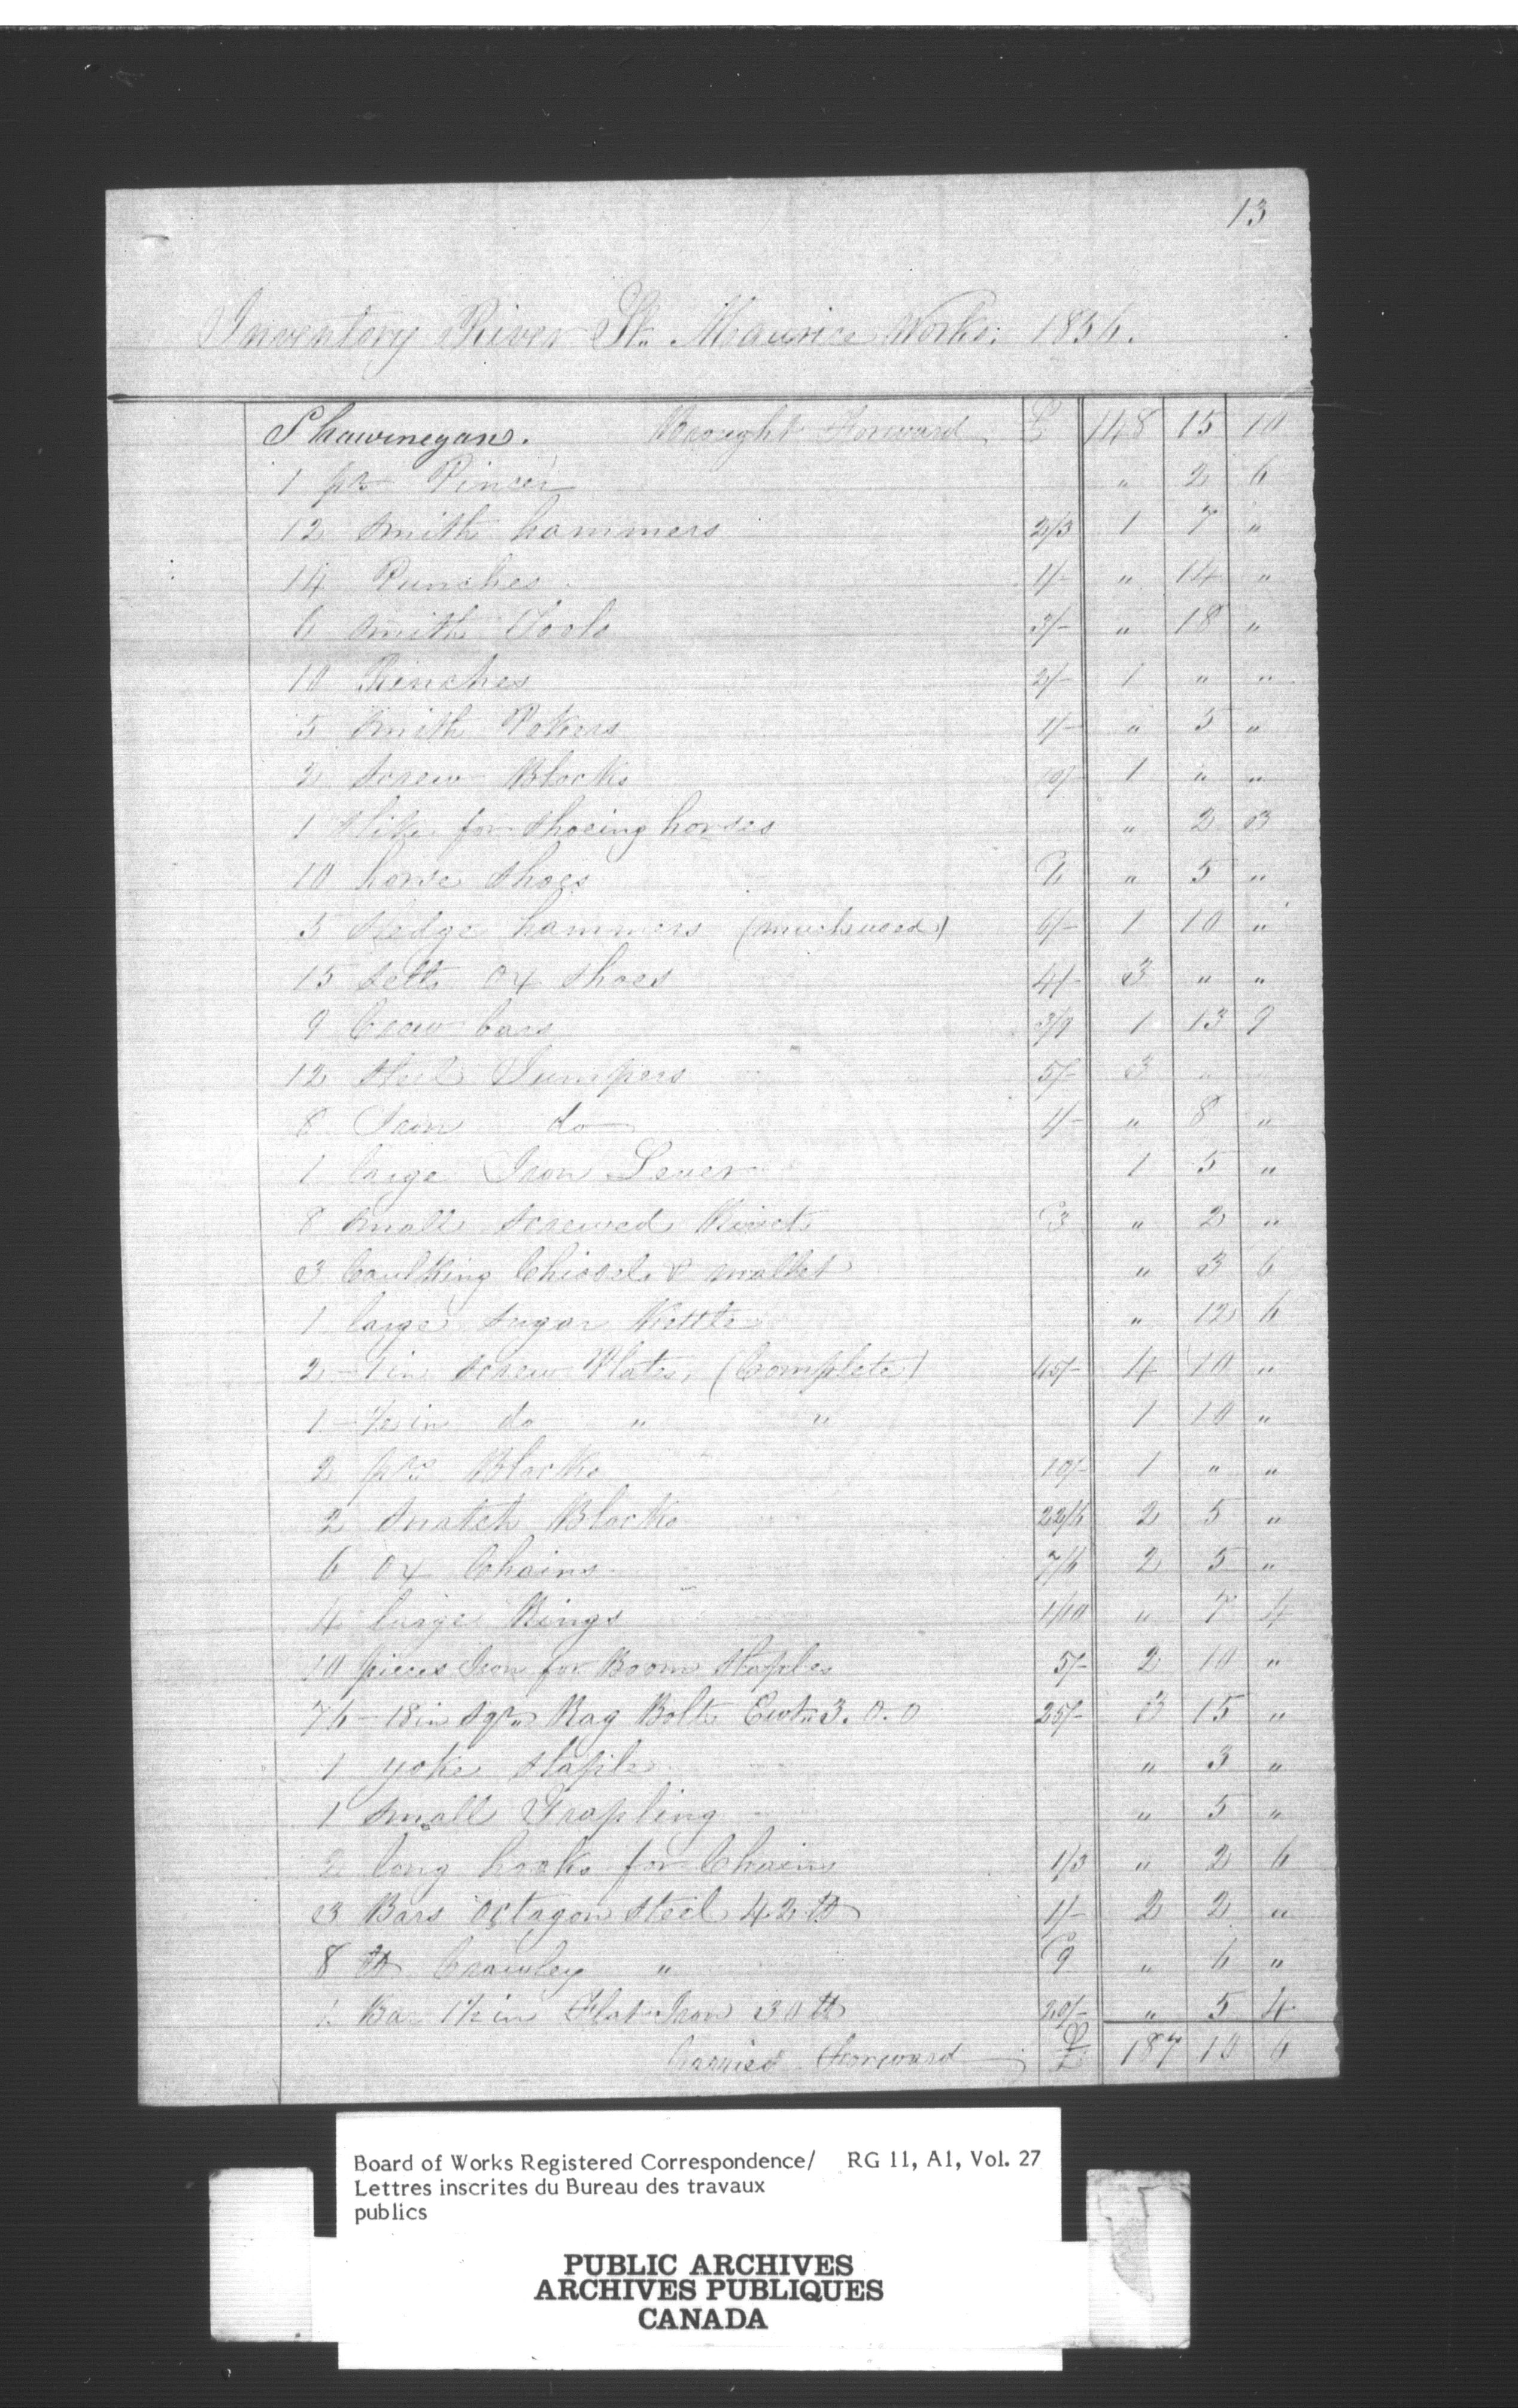 13
Inventory River St. Maurice Works. 1856.
Shawinegan. Brought Forward £ 148 15 10
1 pr Pincer " 2 6
12 Smith hammers 2/3 1 7 "
14 Punches 1/- " 14 "
6 Smith Tools 3/- " 18 "
10 Rinches 2/- 1 " "
5 Smith Pokers 1/- " 5 "
2 Screw Blocks 1 " "
1 for Shoeing horses " 2 3
10 horse Shoes " 5 "
5 Sledge hammers (much used) 6/- 1 10 "
15 Setts Ox Shoes 4/- 3 " "
9 Crow bars 3/9 1 13 9
12 Steel Jumpers 5/- 3 " "
8 Iron do 1/- " 8 "
1 large Iron Lever 1 5 "
8 small screwed Rivets 3 " 2 "
3 Caulking Chissels & mallet " 3 6
1 large Sugar Kettle " 12 6
2 - 1 in Screw Plates, (Complete) 45/- 4 10 "
1 - ½ in do " " 1 10 "
2 prs Blocks 10/- 1 " "
2 Snatch Blocks 22/6 2 5 "
6 Ox Chains 7/6 2 5 "
4 large Rings 1/10 " 7 4
10 pieces Iron for Boom Staples 5/- 2 10 "
76 - 18 in Sqre Rag Bolts Cwt 3. 0. 0 25/- 3 15 "
1 yoke Staple " 3 "
1 Small Grapling " 5 "
2 long hooks for Chains 1/3 " 2 6
3 Bars Octagon Steel 42 lb 1/- 2 2 "
8 lb Crawley " 9 " 6 "
1 Bar 1½ in Flat Iron 30 lb 20/- " 5 4
Carried Forward £ 187 10 6
Board of Works Registered Correspondence/ RG 11, A1, Vol. 27
Lettres inscrites du Bureau des travaux
publics
PUBLIC ARCHIVES
ARCHIVES PUBLIQUES
CANADA